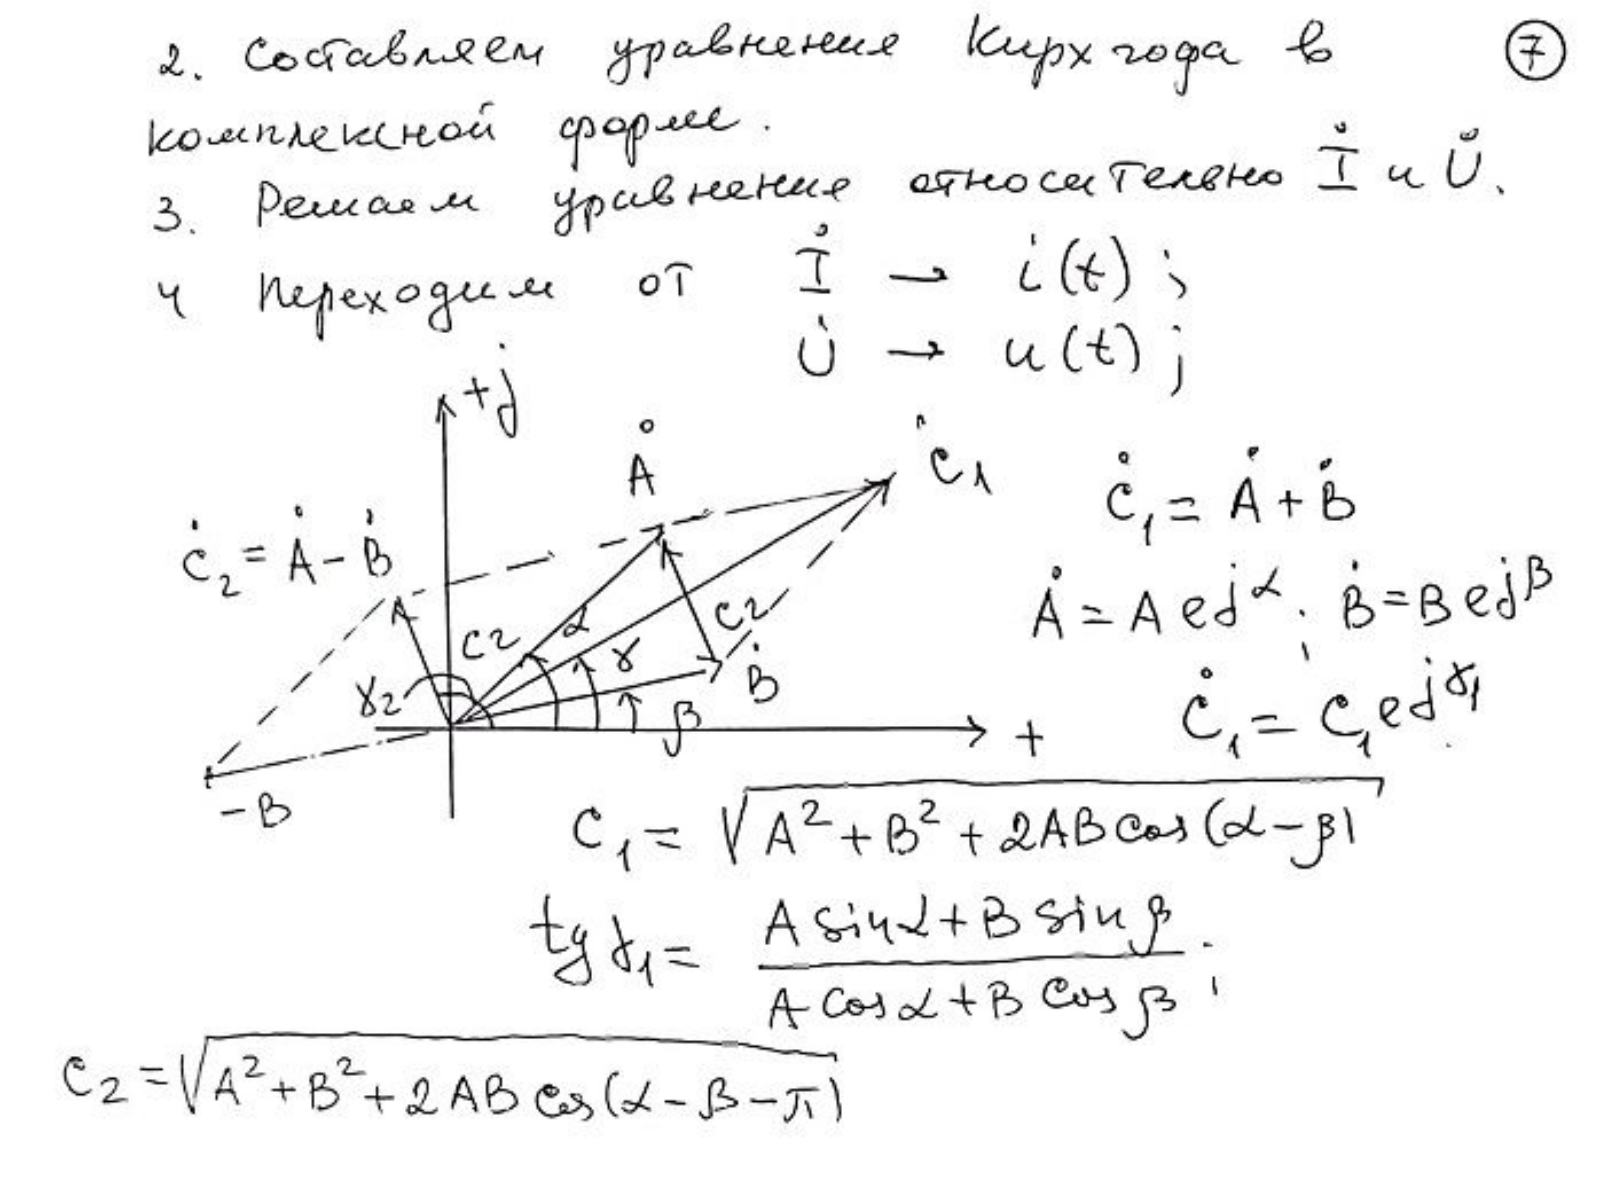 2. Составляем уравнения Кирхгофа в ⑦
комплексной форме.
3. Решаем уравнение относительно İ и U̇.
4 Переходим от İ → i(t) ;
U̇ → u(t) ;
+j
Ȧ
Ċ₁
Ċ₁ = Ȧ + Ḃ
Ċ₂ = Ȧ - Ḃ
Ȧ = A e^jα ; Ḃ = B e^jβ
C₂ α γ C₂
γ₂ β Ḃ
Ċ₁ = C₁ e^jγ₁
+
-B
C₁ = √(A² + B² + 2AB cos(α-β)
tg γ₁ = (A sin α + B sin β) / (A cos α + B cos β) ;
C₂ = √(A² + B² + 2AB cos(α - β - π)